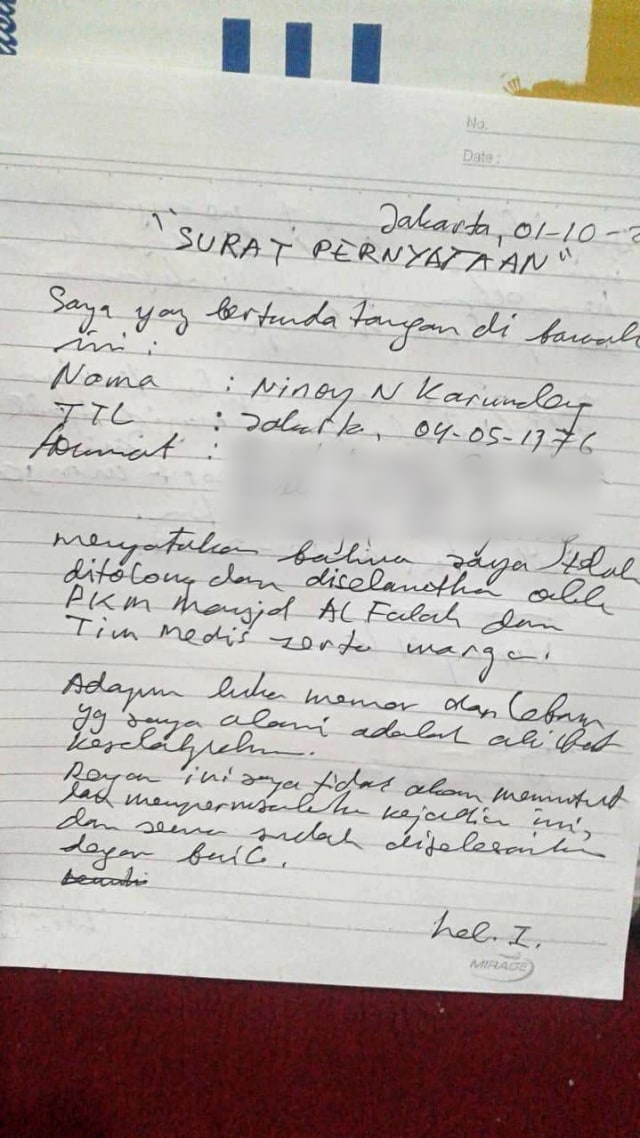 No.
Date :
Jakarta, 01-10-2
"SURAT PERNYATAAN"
Saya yang bertanda tangan di bawah
ini :
Nama : Ninoy N Karundeng
TTL : Jakarta, 04-05-1976
Alamat :
menyatakan bahwa saya telah
ditolong dan diselamatkan oleh
PKM Masjid Al Falah dan
Tim Medis serta warga.
Adapun luka memar dan lebam
yg saya alami adalah akibat
kesalahpahaman.
Dengan ini saya tidak akan menuntut
dan mempermasalahkan kejadian ini,
dan semua sudah diselesaikan
dengan baik.
hal. I.
MIRAGE